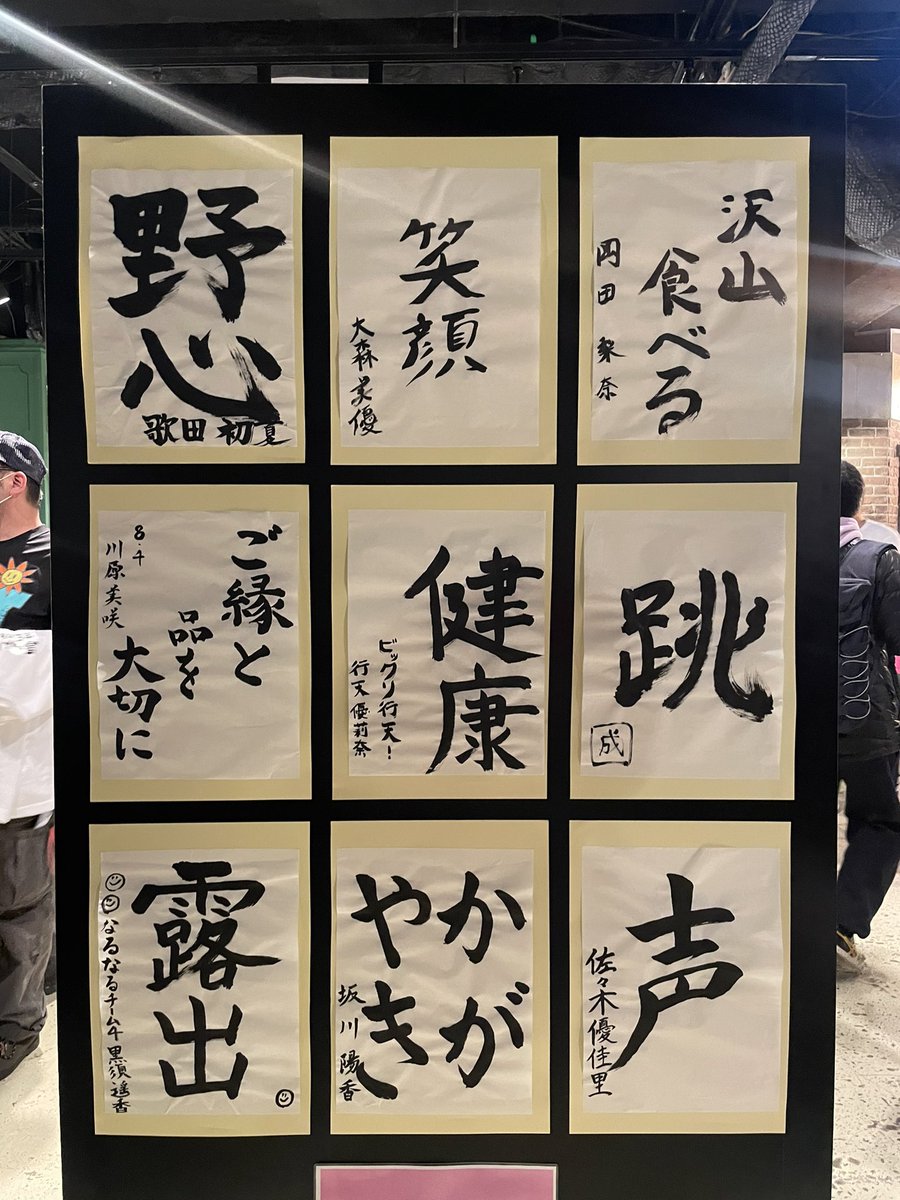 野心
歌田初夏
笑顔
大森美優
沢山
食べる
岡田 梨奈
ご縁と
品を
大切に
8.4
川原美咲
健康
ビックリ行天!
行天優莉奈
跳
成
露出
なるなるチーム4 黒須遥香
かが
やき
坂川陽香
声
佐々木優佳里